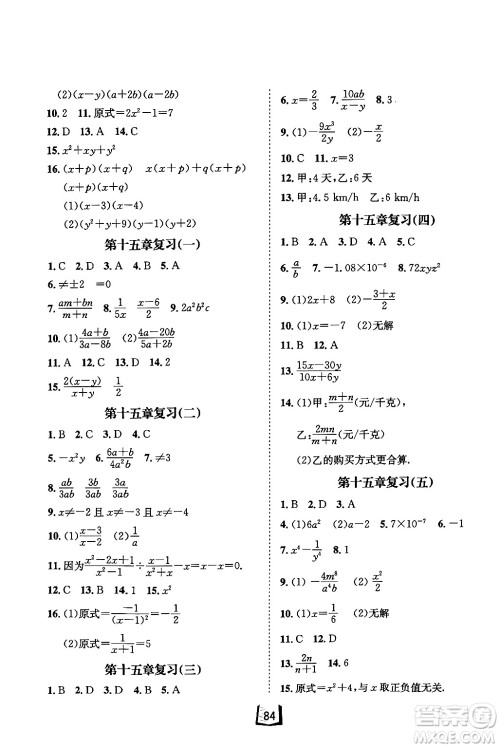 (2)(x−y)(a+2b)(a−2b)
10. 2　11. 原式=2x²−1=7
12. D　13. A　14. C
15. x²+xy+y²
16. (x+p)(x+q)　x(x+p)+q(x+p)
(x+p)(x+q)
(1)(x−3)(x−4)
(2)(y²+y+9)(y+2)(y−1)
第十五章复习(一)
1. C　2. D　3. A　4. C　5. D
6. ≠±2　=0
7. (am+bn)/(m+n)　8. 1/(5x)　(x−6)/2　9. 2a²b²c
10. (1)(4a+b)/(3a−8b)　(2)(4a−20b)/(5a+2b)
11. A　12. C　13. D　14. 2
15. 2(x−y)/(x+y)　1/2
第十五章复习(二)
1. B　2. C　3. D　4. A
5. −x²y　6. (6a+b)/(4a²)　7. 1/4
8. ab/(3ab)　3/(3ab)
9. x≠−2 且 x≠−3 且 x≠−4
10. (1)(x−3)/(x−2)　(2)1/a
11. 因为(x²−2x+1)/(x²−1)÷(x−1)/(x²+x)−x=x−x=0.
12. B　13. C　14. A　15. x²
16. (1)原式=−1/(−1)²(x²)=−1/x²
(2)原式=1/(x+1)=5
第十五章复习(三)
1. B　2. D　3. A　4. B　5. D
6. 1/(a−b)　7. 10ab/x　8. 3
9. (1)9x³/(2y)　(2)−x/3
10. C　11. x=3
12. 甲:4 天,乙:6 天
13. 甲:4.5 km/h　乙:6 km/h
第十五章复习(四)
1. B　2. A　3. D　4. C　5. D
6. a/b　7. −1.08×10⁻⁶　8. 72xyz²
9. (1)2x+8　(2)−(3+x)/2
10. (1)x=0　(2)无解
11. B　12. A
13. (15x−30y)/(10x+6y)
14. (1)甲:(m+n)/2(元/千克),
乙:2mn/(m+n)(元/千克)
(2)乙的购买方式更合算.
第十五章复习(五)
1. B　2. D　3. A
4. (1)6a²　(2)−2　5. 7×10⁻⁷　6. −1
7. x⁴−1/x⁴　8. 1
9. (1)−4m⁸/a⁴　(2)x²/4
10. (1)x=1/6　(2)无解
11. B　12. C
13. 1/n−1/(n+1)　14. 6
15. 原式=x²+4,与 x 取正负值无关.
84